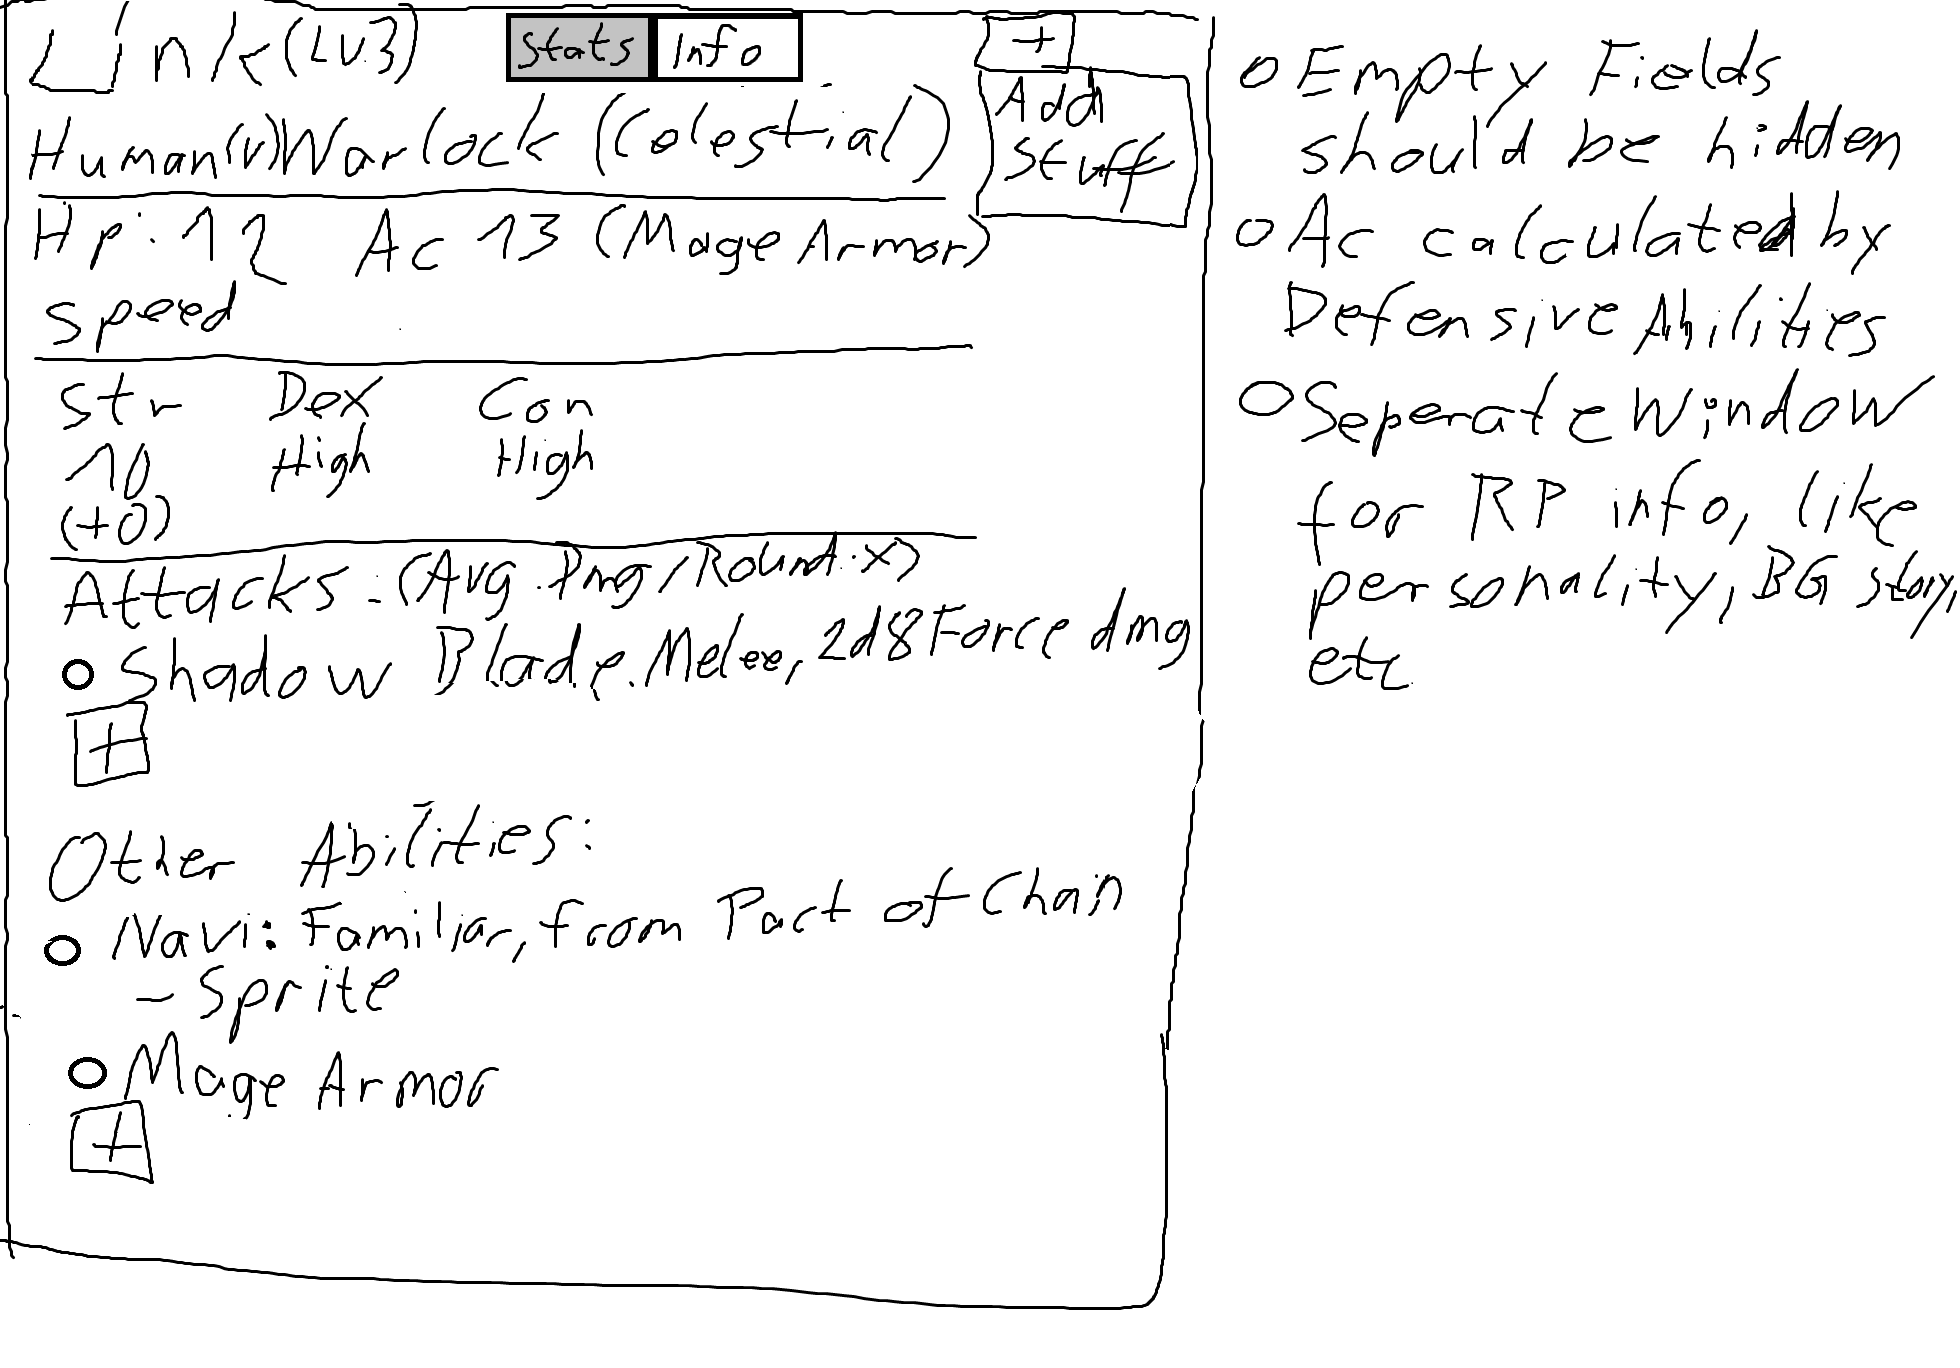 Link (Lv3)
Stats Info
+
Add
Stuff
Human(v)Warlock (Celestial)
Hp: 12 Ac 13 (Mage Armor)
speed
Str Dex Con
10 High High
(+0)
Attacks: (Avg. Dmg/Round: x)
Shadow Blade. Melee, 2d8 Force dmg
+
Other Abilities:
Navi: Familiar, from Pact of Chain
- Sprite
Mage Armor
+
Empty Fields
should be hidden
Ac calculated by
Defensive Abilities
Seperate Window
for RP info, like
personality, BG story,
etc.